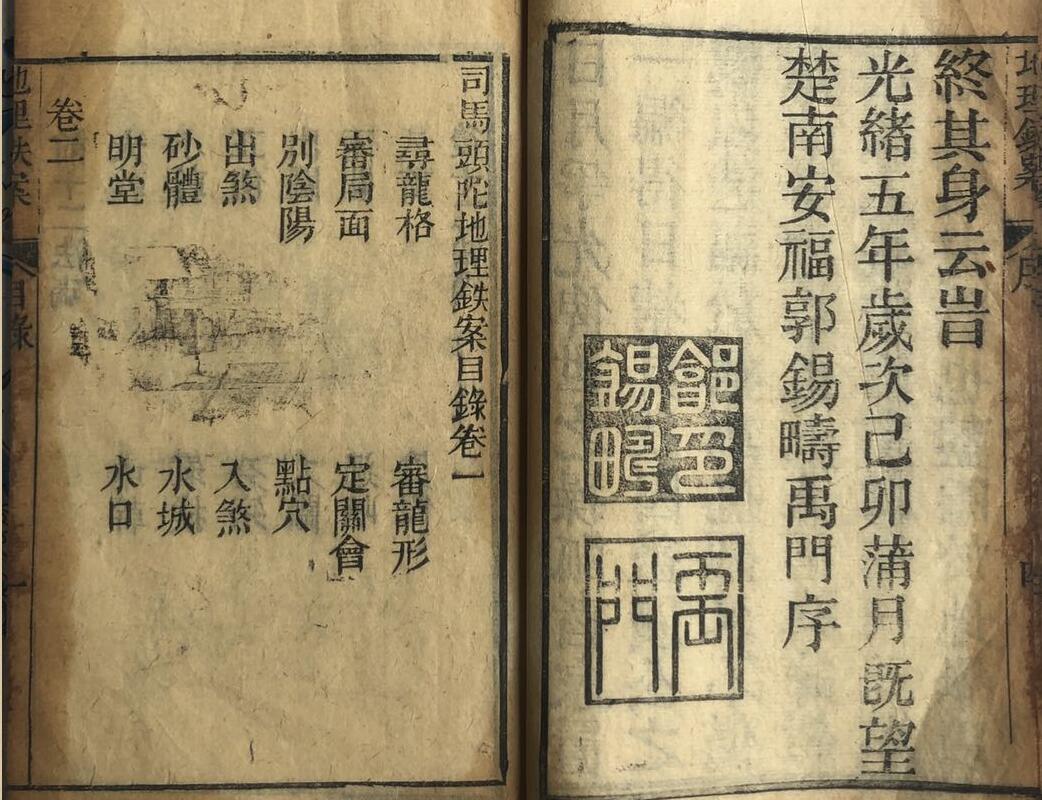 地理鉄案 序
終其身云旹
光緒五年歲次己卯蒲月既望
楚南安福郭錫疇禹門序
郭印錫疇
禹門
司馬頭陀地理鉄案目錄卷一
尋龍格 審龍形
審局面 定關會
別陰陽 點穴
出煞 入煞
砂體 水城
明堂 水口
卷二
地理鉄案 目錄